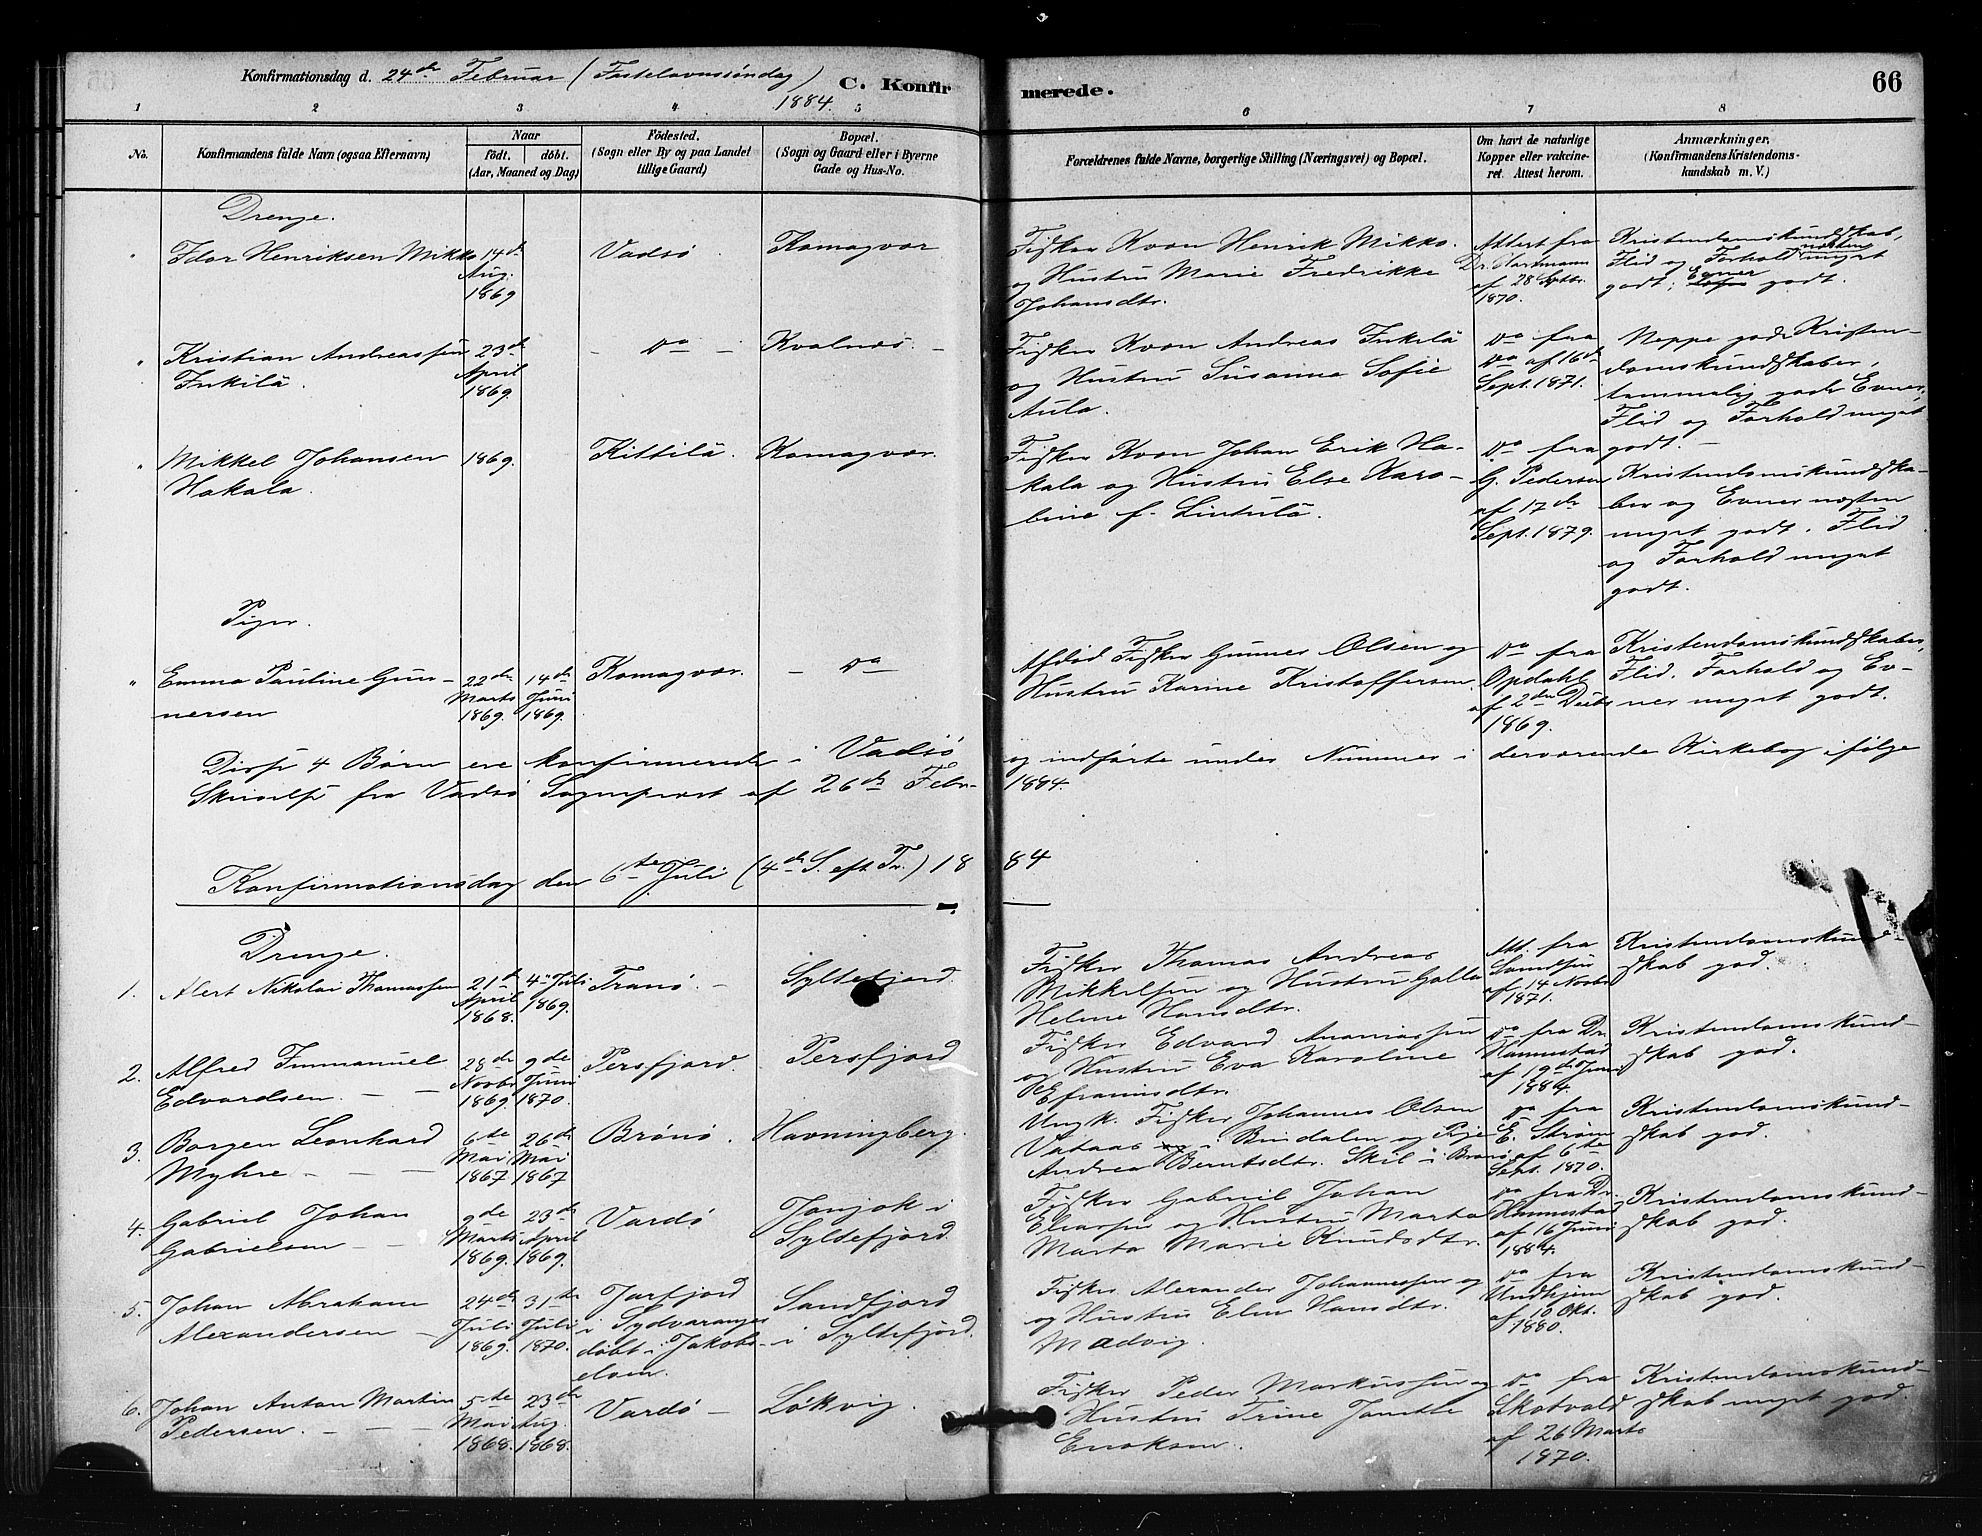 Konfirmationsdag d. 24de Februar (Fastelavnssöndag)
1884.
C. Konfirmerede.
66
1 2 3 4 5 6 7 8
No.
Konfirmandens fulde Navn (ogsaa Efternavn)
Naar
födt. döbt.
(Aar, Maaned og Dag)
Födested.
(Sogn eller By og paa Landet
tillige Gaard)
Bopæl.
(Sogn og Gaard eller i Byerne
Gade og Hus-No.
Forældrenes fulde Navne, borgerlige Stilling (Næringsvei) og Bopæl.
Om havt de naturlige
Kopper eller vakcine-
ret. Attest herom.
Anmærkninger,
(Konfirmandens Kristendoms-
kundskab m. V.)
Drenge.
" Idar Henriksen Mikko
14de
Aug.
1869
Vadsö
Komagvær
Fisker Kvæn Henrik Mikko.
og Hustru Marie Fredrikke
Johansdtr.
Attest fra
Dr. Hartmann
af 28 Septbr.
1870.
Kristendomskundskab,
Flid og Forhold næsten meget
godt; Evner godt.
" Kristian Andreassen
Inkilä.
23de
April
1869
- Do -
Kvalnæs. -
Fisker Kvæn Andreas Inkilä
og Hustru Susanna Sofie
Aula.
Do fra
Do af 16de
Sept. 1871.
Neppe gode Kristen-
domskundskaber,
temmelig gode Evner,
Flid og Forhold meget
godt. -
" Mikkel Johansen
Hakala.
1869.
Kittilä.
Komagvær.
Fisker Kvæn Johan Erik Ha-
kala og Hustru Else Karo-
line f. Lintulä.
Do fra
G. Pedersen
af 17de
Sept. 1879.
Kristendomskundska-
ber og Evner næsten
meget godt. Flid
og Forhold meget
godt.
Piger.
" Emma Pauline Gun-
nersen
22de
Marts
1869.
14de
Juni
1869.
Komagvær.
- Do
Afdöd Fisker Gunnes Olsen og
Hustru Karine Kristoffersen.
Do fra
Opdahl
af 2den Decbr
1869.
Kristendomskundskaber,
Flid, Forhold og Ev-
ner meget godt.
Disse 4 Börn ere konfirmerede i Vadsö og indförte under Nummer i derværende Kirkebog ifölge
Skrivelse fra Vadsö Sogneprest af 26de Febr. 1884.
Konfirmationsdag den 6te Juli (4de S. eft. Tr.) 1884
Drenge.
1. Alert Nikolai Thomassen
21de
April
1868.
4de Juli
1869.
Tranö. -
Syltefjord
Fisker Thomas Andreas
Mikkelsen og Hustru Golla
Helene Hansdtr.
Att. fra
af 14 Novbr
1871.
Kristendomskund-
skab god.
2. Alfred Immanuel
Edvardsen. - -
28de
Novbr
1869.
9de
Juni
1870.
Persfjord.
Persfjord
Fisker Edvard Ananiassen
og Hustru Eva Karoline
Efraimsdtr.
Do fra Dr.
Hannestad
af 19de Juni
1884.
Kristendomskund-
skab god.
3. Borgen Leonhard
Myhre - -
6te
Mai
1867.
26de
Mai
1867
Brönö.
Havningberg.
Ungk. Fisker Johannes Olsen
Vataas i Bindalen og Pige
Andrea Berntsdtr. Skil i Brönö
Do fra
E. Ström
af 6te
Sept. 1870.
Kristendomskund-
skab god.
4. Gabriel Johan
Gabrielsen - -
9de
Marts
1869.
23de
April
1869.
Vardö
Jonjok i
Syltefjord.
Fisker Gabriel Johan
Eliassen og Hustru Marta
Marta Marie Knudsdtr.
Do fra Dr.
Hannestad
af 16 Juni
1884.
Kristendomskund-
skab god.
5. Johan Abraham
Alexandersen -
24de
Juli
1869.
31te
Juli
1870.
Jarfjord
i Sydvaranger
döbt i Jakobs-
elven.
Sandfjord
i Syltefjord.
Fisker Alexander Johannessen og
og Hustru Elen Hansdtr.
Madvig.
Do fra
Undhjem
af 10 Okt.
1880.
Kristendomskund-
skab god.
6. Johan Anton Martin
Pedersen. - - -
5te
Mai
1868.
23de
Aug.
1868.
Vardö -
Lökvig.
Fisker Peder Markussen og
Hustru Trine Janette
Enoksen.
Do fra
Skotvold
af 26 Marts
1870.
Kristendomskund-
skab meget god